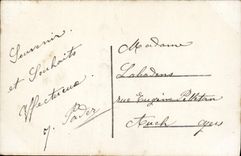 Souvenir
et Souhaits
Affectueux
J. Pader
Madame
Labadens
rue Eugène Pelletan
Auch
Gers